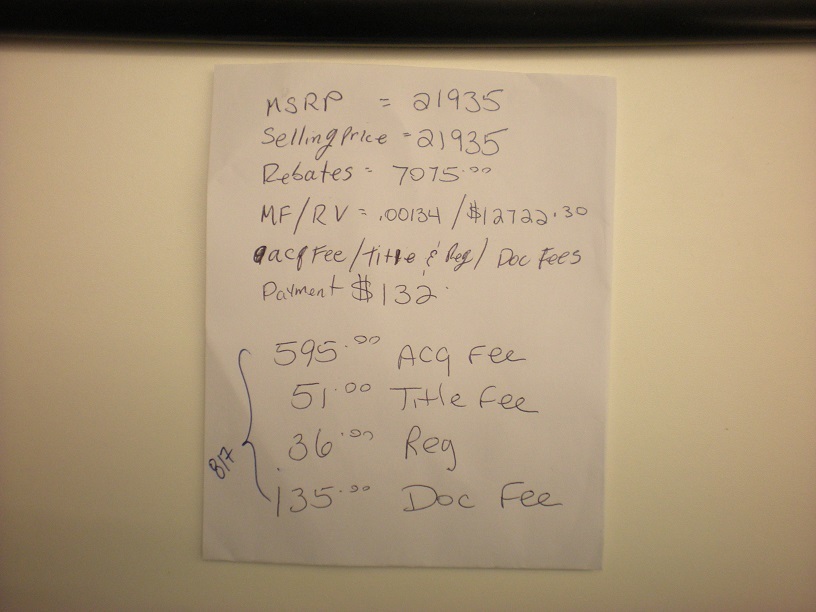 MSRP = 21935
Selling Price = 21935
Rebates = 7075.00
MF/RV = .00134 / $12722.30
acq Fee / Title & Reg / Doc Fees
Payment $132
595.00 Acq Fee
51.00 Title Fee
36.00 Reg
135.00 Doc Fee
817